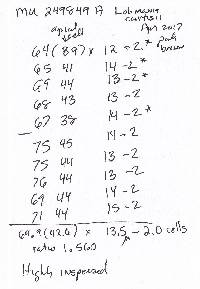 MU 249549 A Lobmania
curtsii
apical
cell
Apr 2017
64 (39) x 12 - 2 *
park
brown
65 41 14 - 2 *
69 44 13 - 2 *
68 43 13 - 2
67 38 14 - 2 *
14 - 2
75 45
75 44 13 - 2
76 44 13 - 2
69 44 14 - 2
71 44 15 - 2
69.9 (42.6) x 13.5 - 2.0 cells
ratio 1.560
Highly inspersed